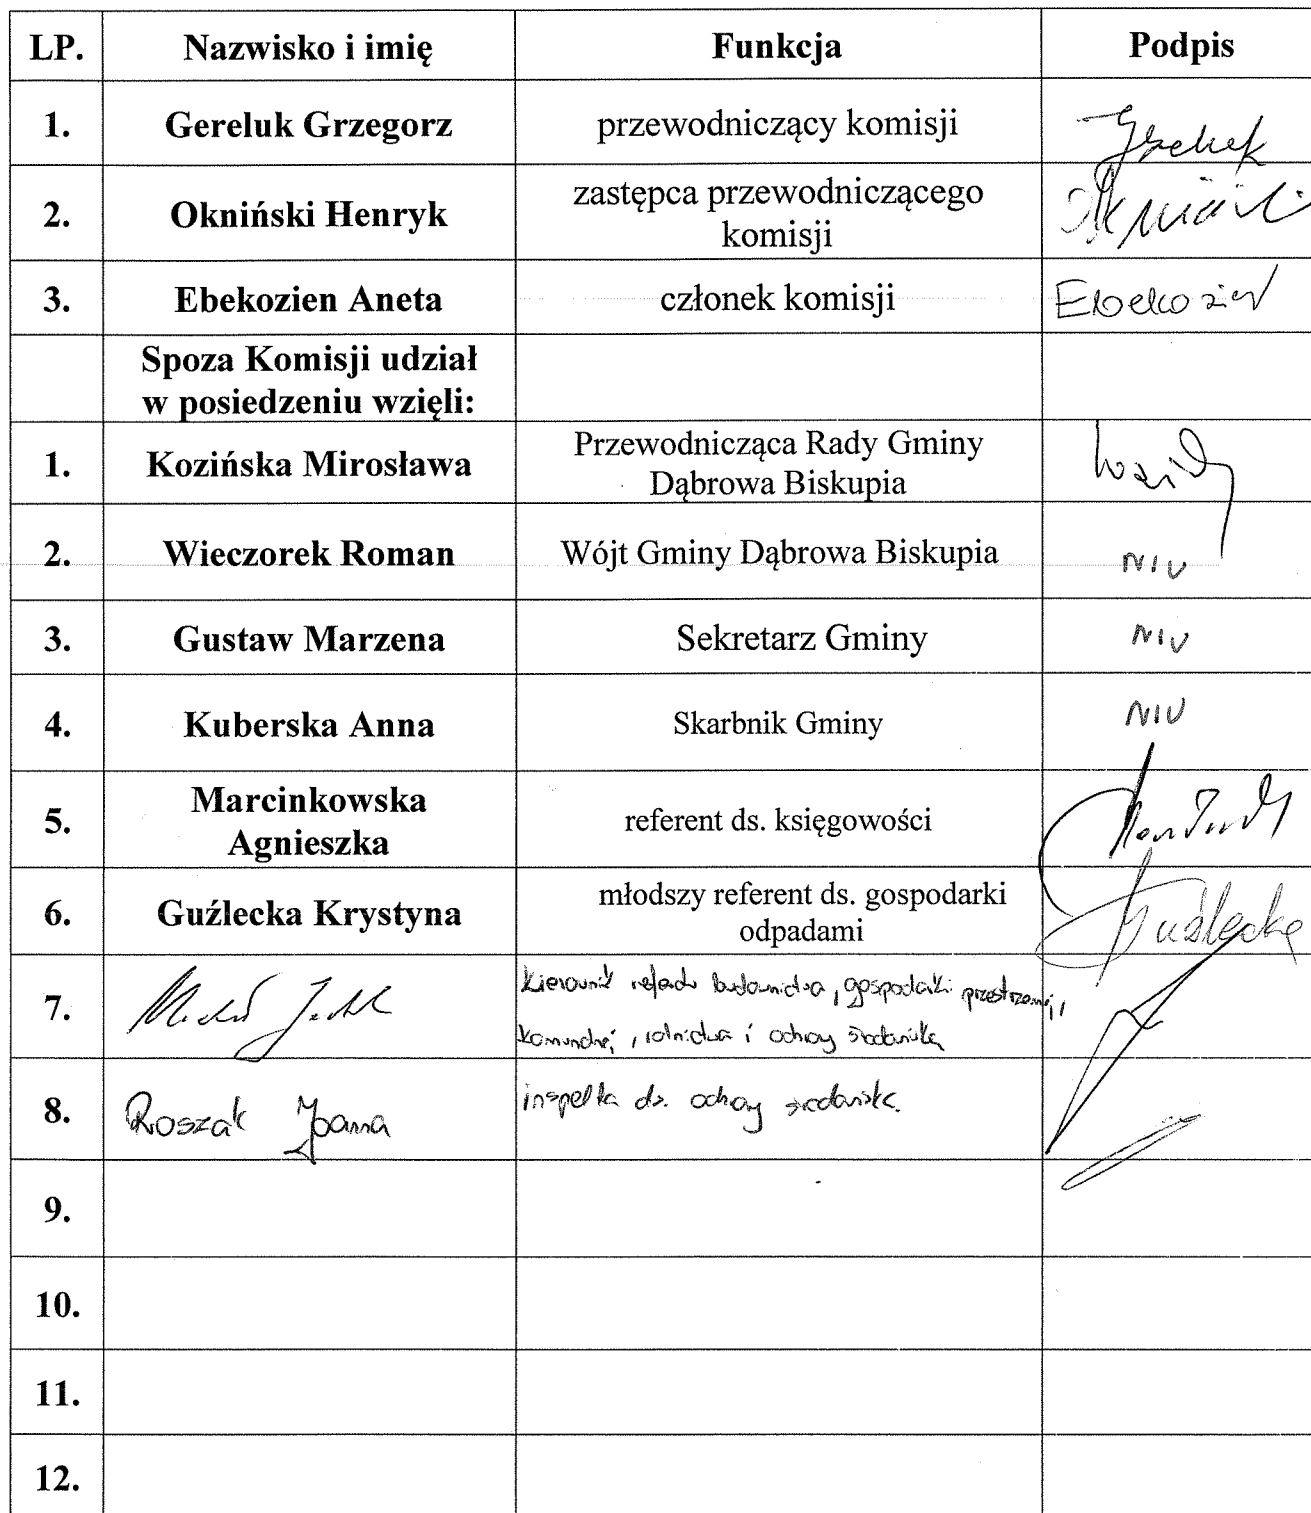 LP. Nazwisko i imię Funkcja Podpis
1. Gereluk Grzegorz przewodniczący komisji
2. Okniński Henryk zastępca przewodniczącego
komisji
3. Ebekozien Aneta członek komisji Ebekozien
Spoza Komisji udział
w posiedzeniu wzięli:
1. Kozińska Mirosława Przewodnicząca Rady Gminy
Dąbrowa Biskupia
2. Wieczorek Roman Wójt Gminy Dąbrowa Biskupia NIU
3. Gustaw Marzena Sekretarz Gminy NIU
4. Kuberska Anna Skarbnik Gminy NIU
5. Marcinkowska
Agnieszka referent ds. księgowości
6. Guźlecka Krystyna młodszy referent ds. gospodarki
odpadami Guźlecka
7. Kierownik referatu budownictwa, gospodarki przestrzennej,
komunalnej, rolnictwa i ochrony środowiska
8. Roszak Joanna inspektor ds. ochrony środowiska.
9.
10.
11.
12.